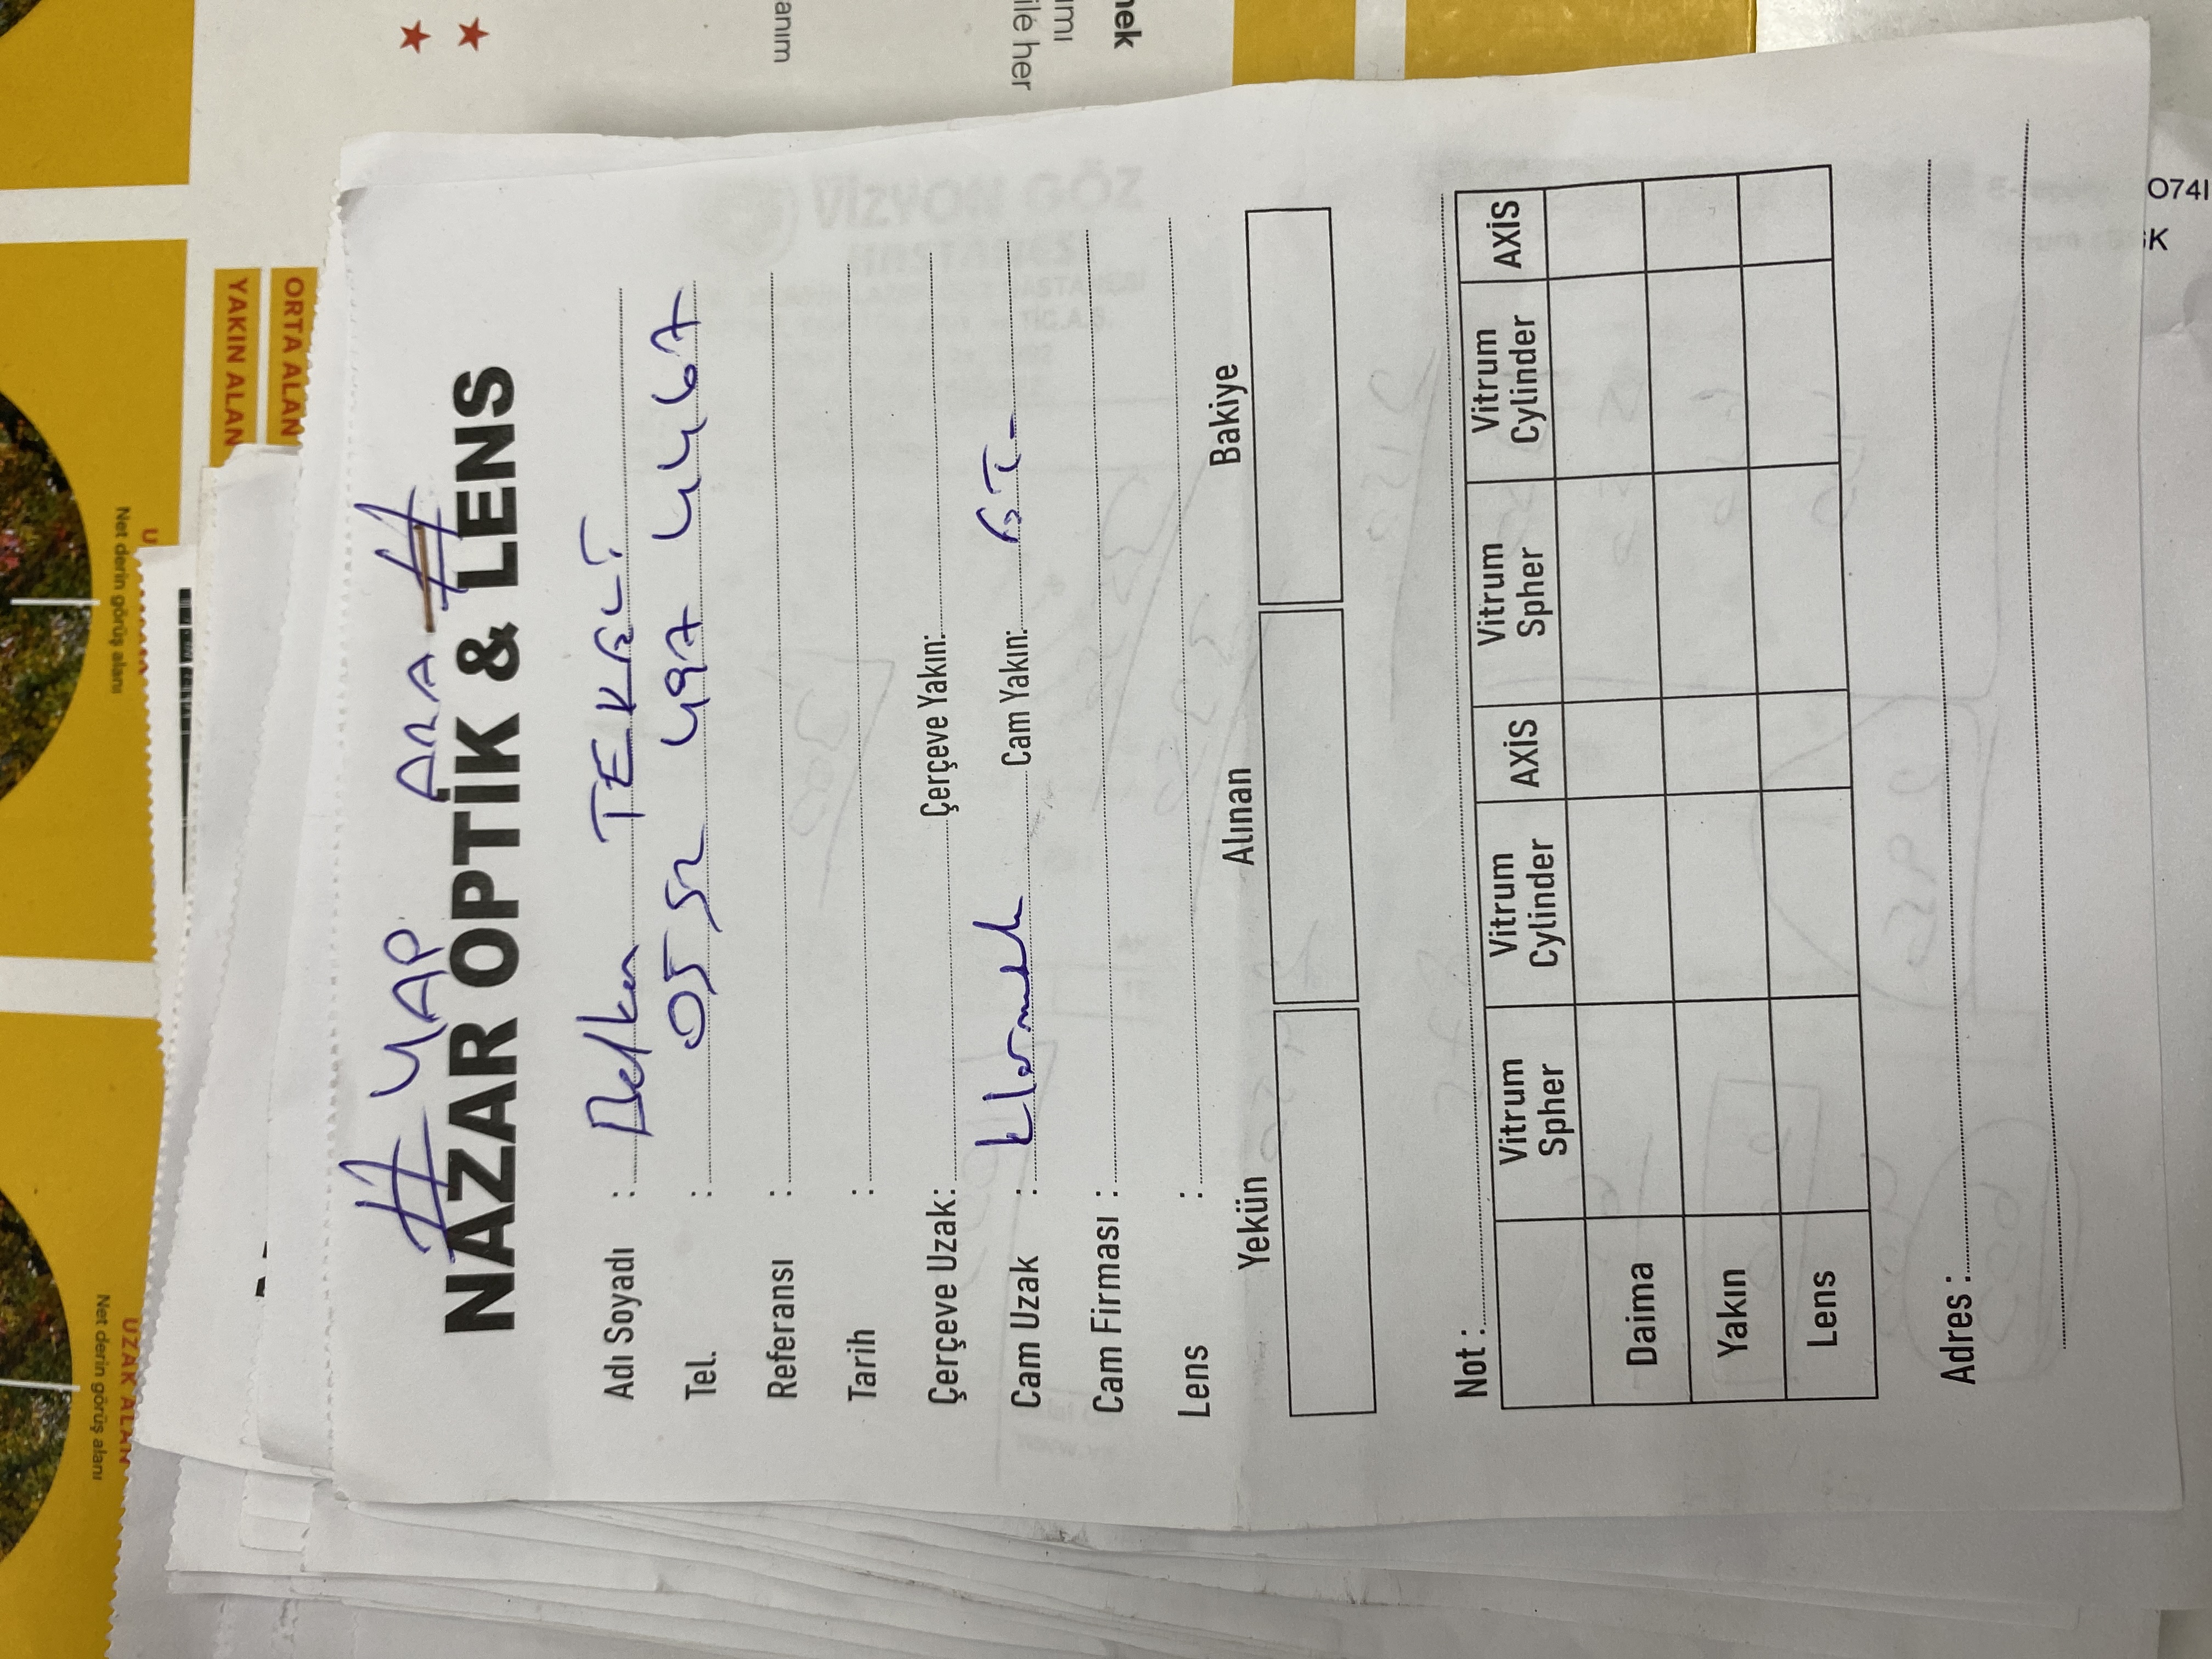 Net derin görüş alanı
UZAK ALAN
Net derin görüş alanı
YAKIN ALAN
ORTA ALAN
# YAP ARA #
NAZAR OPTİK & LENS
Adı Soyadı : TEKELİ
Tel. : 0552 497 4467
Referansı :
Tarih :
Çerçeve Uzak: Çerçeve Yakın:
Cam Uzak : Cam Yakın:
Cam Firması :
Lens :
Yekün Alınan Bakiye
Not :
Vitrum Spher Vitrum Cylinder AXİS Vitrum Spher Vitrum Cylinder AXİS
Daima
Yakın
Lens
Adres :